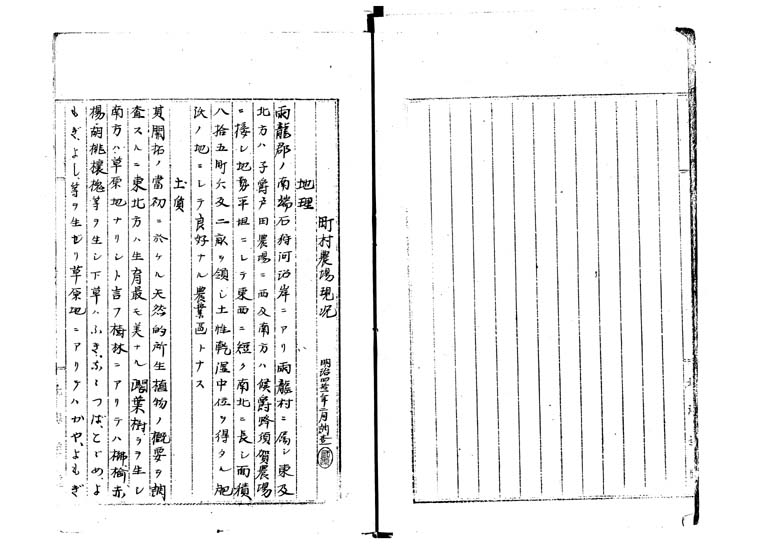 町村農場現況
明治四十三年二月調査
地理
雨龍郡ノ南端石狩河沿岸ニアリ雨龍村ニ属シ東及
北方ハ子爵戸田農場ニ西及南方ハ侯爵蜂須賀農場
ニ接シ地勢平坦ニシテ東西ニ短ク南北ニ長シ面積
八拾五町六反二畝ヲ領シ土性乾湿中位ヲ得タル肥
沃ノ地ニシテ良好ナル農業区トナス
土質
其開拓ノ當初ニ於ケル天然的所生植物ノ概要ヲ調
査スルニ東北方ハ生育最モ美ナル濶葉樹ヲ生シ
南方ハ草原地ナリシト言フ樹林ニアリテハ梛楡赤
楊胡桃欀櫓等ヲ生シ下草ハふき、ふつばとゞめよ
もぎ、よし等ヲ生セリ草原地ニアリテハかや、よもぎ